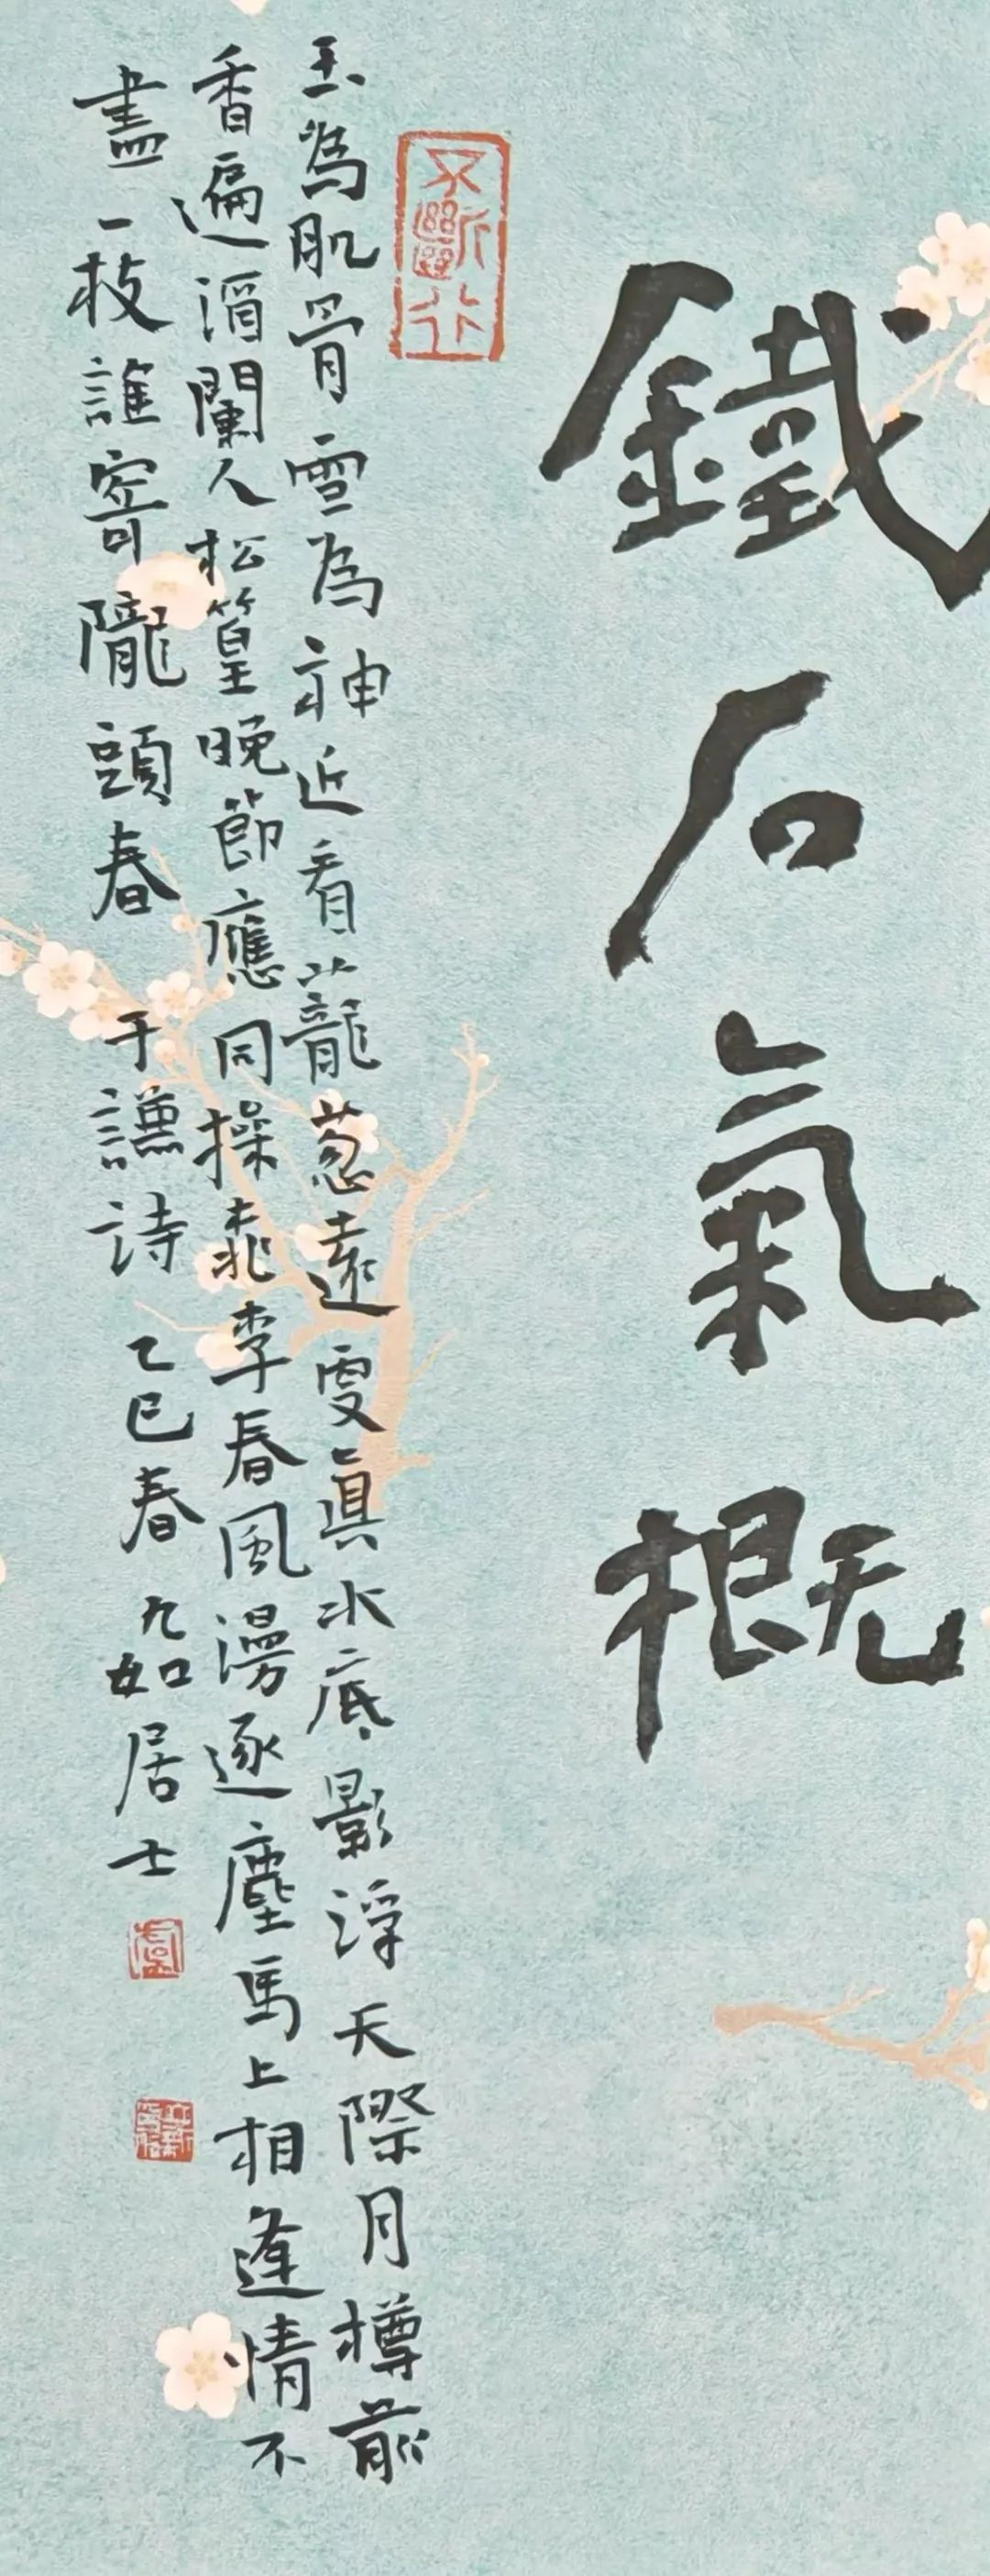 鐵石氣概
不斷行
玉為肌骨雪為神近看蘢蔥遠更真水底影浮天際月樽前
香遍酒闌人松篁晚節應同操桃李春風漫逐塵馬上相逢情不
盡一枝誰寄隴頭春 于謙詩 乙巳春 九如居士